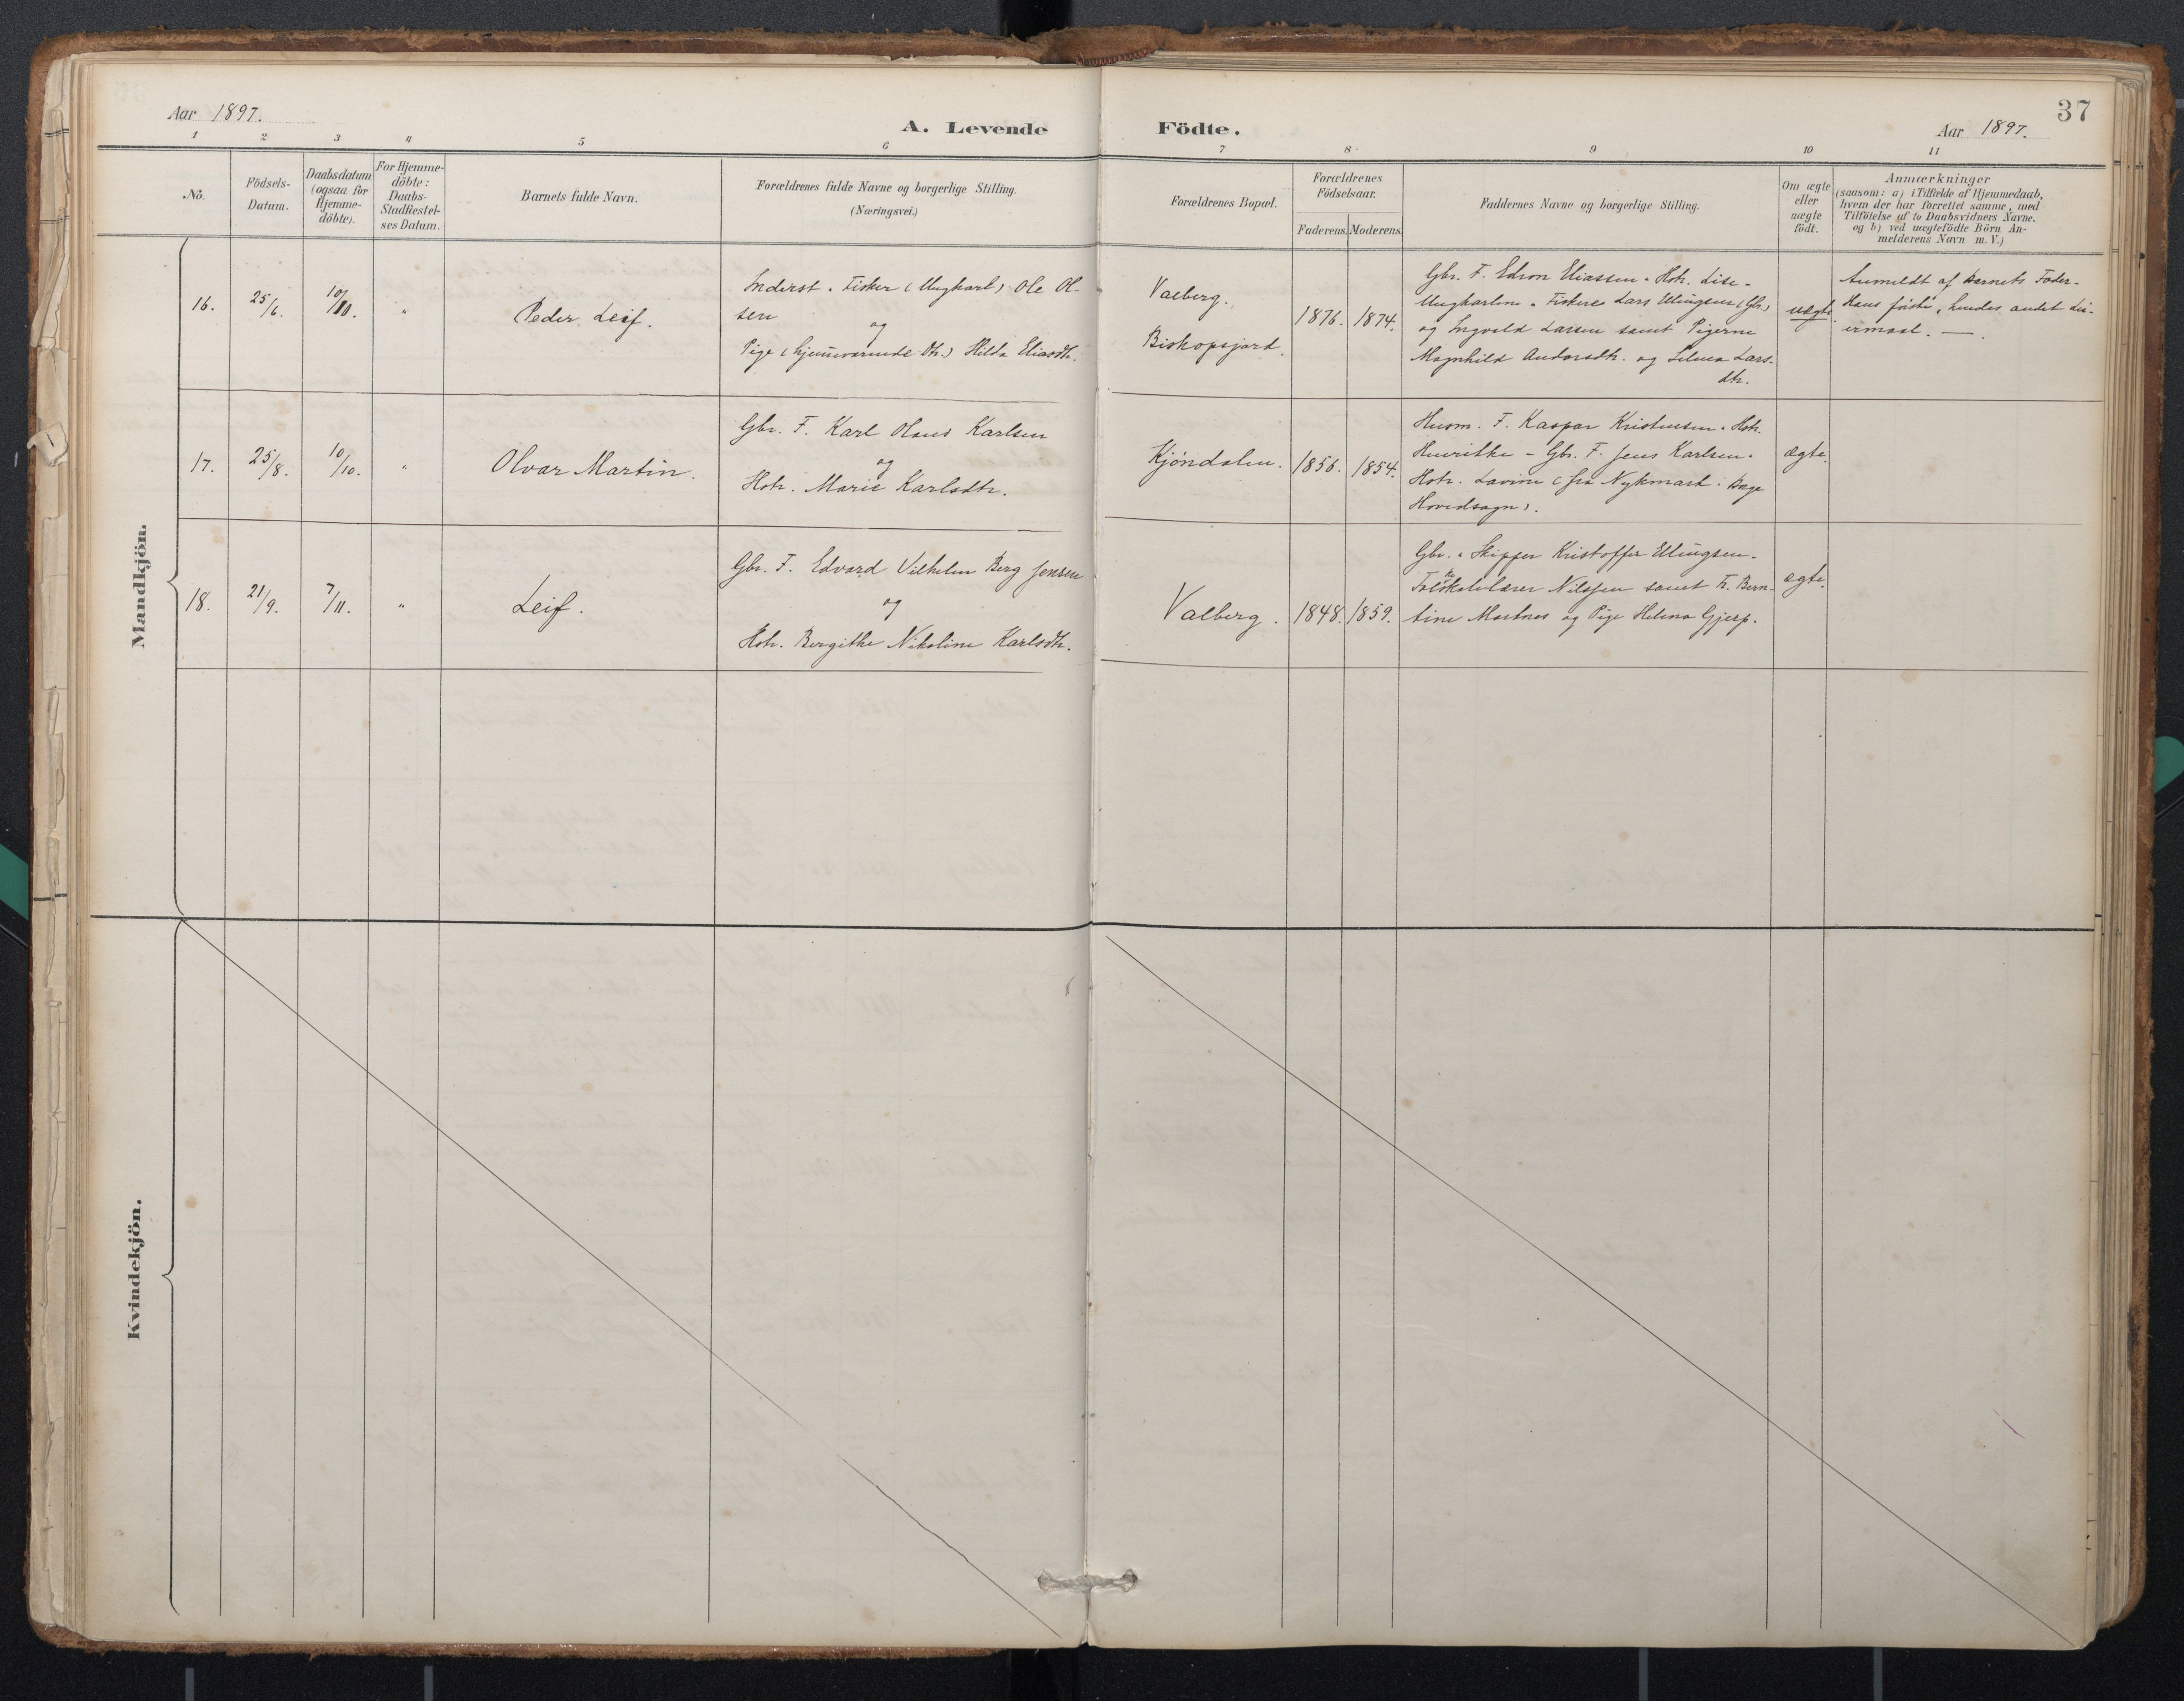 37
Aar 1897.
A. Levende Födte.
Aar 1897.
1 2 3 4 5 6 7 8 9 10 11
No.
Födsels-Datum.
Daabsdatum (ogsaa for Hjemme-döbte).
For Hjemme-döbte: Daabs-Stadfæstel-ses Datum.
Barnets fulde Navn.
Forældrenes fulde Navne og borgerlige Stilling.
(Næringsvei.)
Forældrenes Bopæl.
Forældrenes Födselsaar.
Faderens. Moderens.
Faddernes Navne og borgerlige Stilling.
Om ægte eller uægte födt.
Anmærkninger
(saasom: a) i Tilfælde af Hjemmedaab,
hvem der har forrettet samme, med
Tilföielse af to Daabsvidners Navne.
og b) ved uægtefödte Börn An-
melderens Navn m. V.)
Mandkjön.
16. 25/6. 10/10. " Peder Leif.
Inderst. Fisker (Ungkarl) Ole Ol-
sen
og
Pige (hjemmeværende Dtr.) Hilda Eliasdtr.
Valberg.
Biskopsjord.
1876. 1874.
Gbr. F. Edion Eliassen. Hstr. Lise -
Ungkarlene. Fiskere Lars Ellingsen (Gbr.)
og Ingvald Larsen samt Pigerne
Magnhild Andersdtr. og Selma Lars-
dtr.
uægte.
Anmeldt af Barnets Fader.
Hans förste, hendes andet Lei-
ermaal. —
17. 25/8. 10/10. " Olvar Martin.
Gbr. F. Karl Olaus Karlsen
og
Hstr. Marie Karlsdtr.
Kjöndalen. 1856. 1854.
Husm. F. Kaspar Kristensen. Hstr.
Henrikke - Gbr. F. Jens Karlsen.
Hstr. Lavine (fra Nykmark i Buge
Hovedsogn).
ægte.
18. 21/9. 7/11. " Leif.
Gbr. F. Edvard Vilhelm Berg Jensen
og
Hstr. Bergithe Nikoline Karlsdtr.
Valberg. 1848. 1859.
Gbr. Skipper Kristoffer Ellingsen.
Folkeskolelærer Nilssen samt Fr. Bern-
tine Mortnes og Pige Helena Gjerp.
ægte.
Kvindekjön.